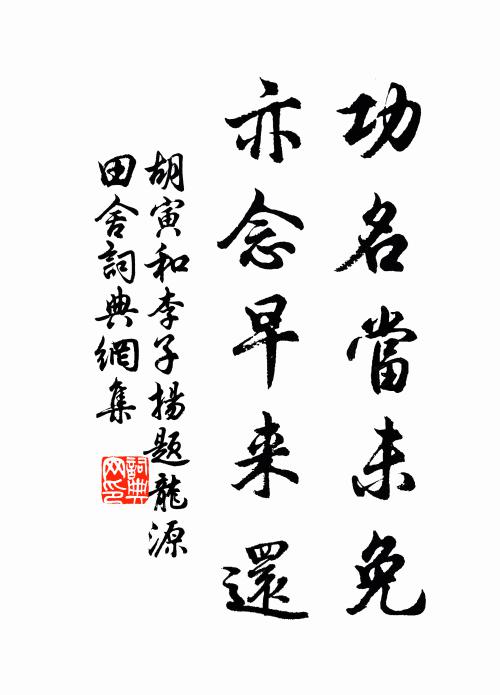 功名當未免
亦念早来還
胡寅和李子揚題龍源
田舍詞典網集
詞典网印